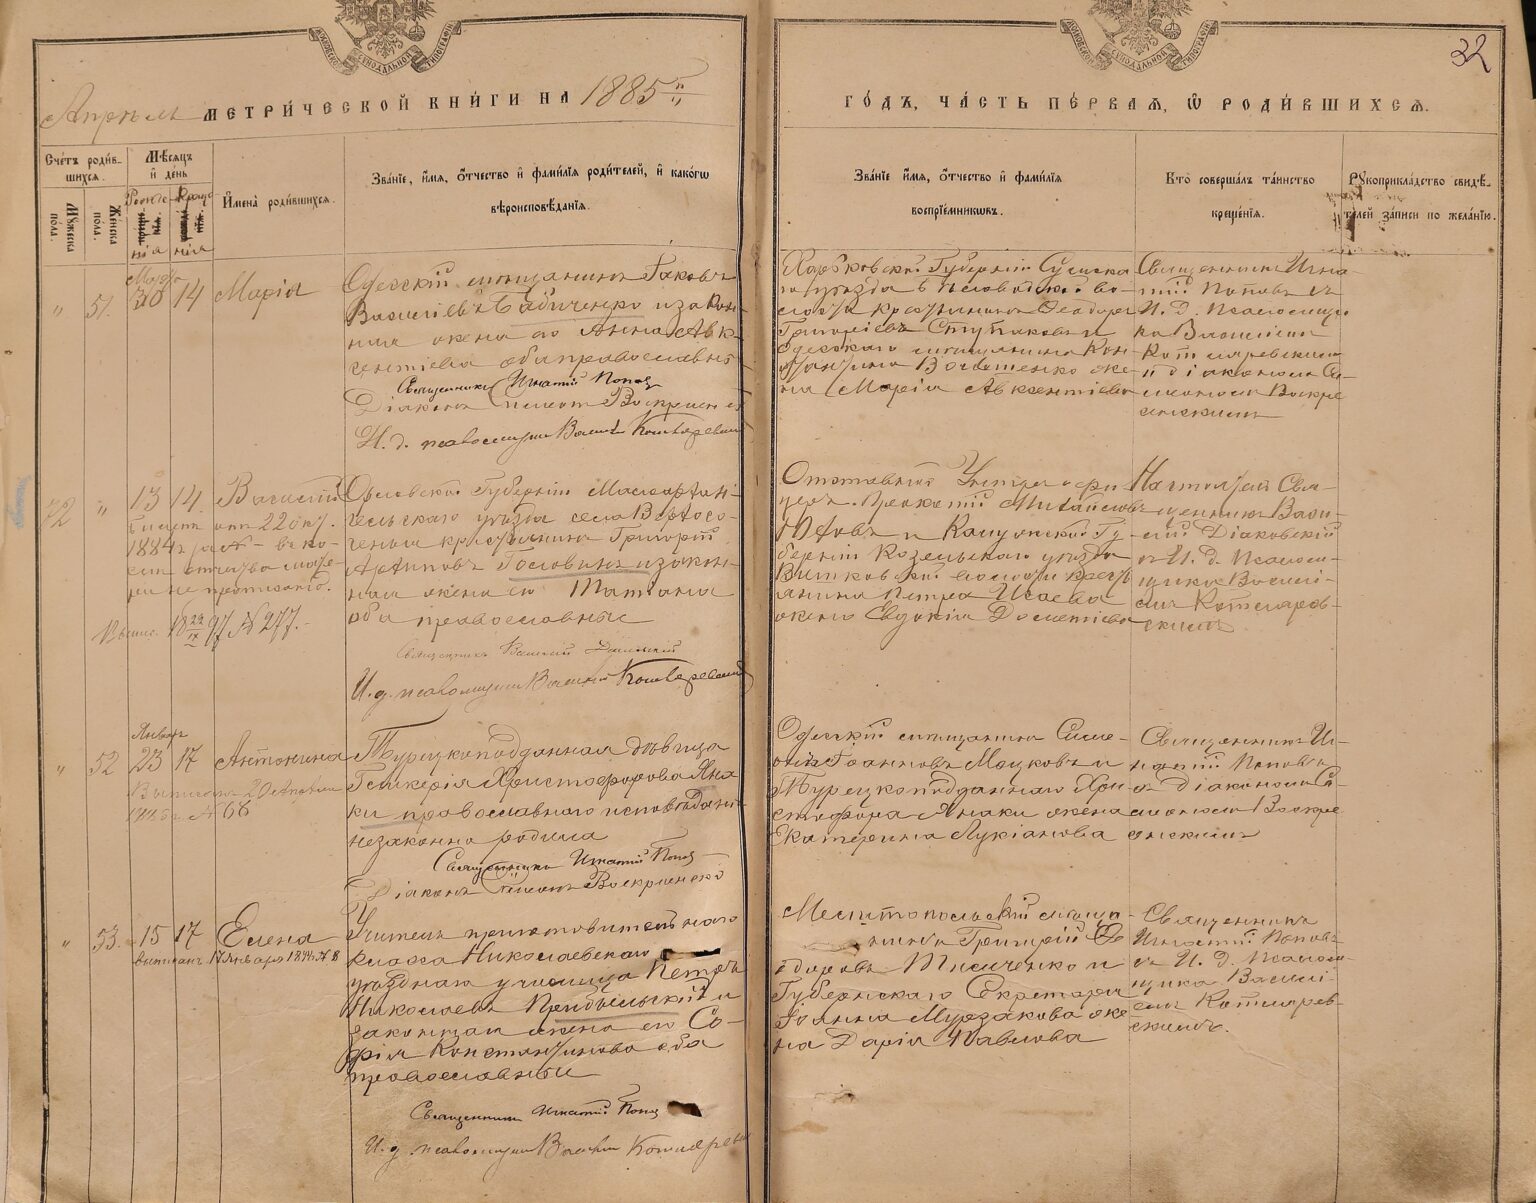 32
Апрель МЕТРИ́ЧЕСКОЙ КНИ́ГИ НА 1885й
ГО́ДЪ, ЧА́СТЬ ПЕ́РВАЯ, Ѡ РОДИ́ВШИХСЯ.
Сче́тъ роди́в-
шихся.
Му́жеска пола.
Же́нска пола.
Мѣ́сяцъ
и҆ де́нь
И҆мена̀ роди́вшихся.
Зва́нїе, и҆́мя, ѻ҆́тчество и҆ фами́лїя роди́телей, и҆ како́гѡ
вѣроисповѣ́данїя.
Зва́нїе и҆́мя, ѻ҆́тчество и҆ фами́лїя
воспрїе́мникѡвъ.
Кто̀ соверша́лъ та́инство
креще́нїя.
Рꙋкоприкла́дство свидѣ́-
телей за́писи по жела́нїю.
Марта
"
51.
30
14
Марія
Одесскій мѣщанинъ Іаковъ
Василіевъ Бабиченко и закон-
ная жена его Анна Авк-
сентіева оба православные
Священникъ Игнатій Попов
Діаконъ Симеонъ Воскресенскій
И. д. псаломщика Василій Котляревскій
Харьковской Губерніи Сумска-
го уѣзда
крестьянинъ Ѳеодоръ
Григоріевъ Ступаковъ и
Одесскаго мѣщанина Кон-
стантина
же-
на Марія Авксентіева
Священникъ Игна-
тій Поповъ съ
И. Д. Псаломщи-
ка Василіемъ
Котляревскимъ
и діакономъ Си-
меономъ Воскре-
сенскимъ
72
"
13
14.
Василій
Билетъ отъ 22 окт.
1884
Выпис. 18 22/IX 97 № 277.
Орловской Губерніи Малоархан-
гельскаго уѣзда села
крестьянинъ Григорій
Архиповъ Головинъ и закон-
ная жена его Татіана
оба православные
Священникъ Василій Діаковскій
И. д. псаломщика Василій Котляревскій
Отставной Унтеръ-офи-
церъ Прокопій Михайловъ
и Калужской Гу-
берніи Козельскаго уѣзда
волости крест-
янина Петра Исаева
жена Евдокія Дометіева
Настоятель Свя-
щенникъ Васи-
лій Діаковскій
съ И. Д. Псалом-
щика Василі-
емъ Котляров-
скимъ
Январь
"
52
23
17
Антонина
Выписанъ 20 Апреля
№ 68
Турецкоподданная дѣвица
Гликерія Христофорова Яна-
ки православнаго исповѣданія
незаконно родила
Священникъ Игнатій Попов
Діаконъ Симеонъ Воскресенскій
Одесскій мѣщанинъ Симе-
онъ Іоанновъ Мацковъ и
Турецкоподданнаго Хри-
стофора Янаки жена
Екатерина Лукіанова
Священникъ Иг-
натій Поповъ
съ Діакономъ Си-
меономъ Воскре-
сенскимъ
"
53.
15
17
Елена
выписанъ 17 Января 1894 № 8
Учитель приготовительнаго
класса Николаевскаго
уѣзднаго училища Петръ
Николаевъ Прибыльскій и
законная жена его Со-
фія Константинова оба
православные
Священникъ Игнатій Попов
И. д. псаломщика Василій Котляревскій
Мелитопольскій мѣща-
нинъ Григорій Ѳе-
одоровъ Тисяченко и
Губернскаго Секретаря
Іоанна Мурзакова же-
на Дарія Павлова
Священникъ
Игнатій Поповъ
съ И. Д. Псалом-
щика Василі-
емъ Котлярев-
скимъ.